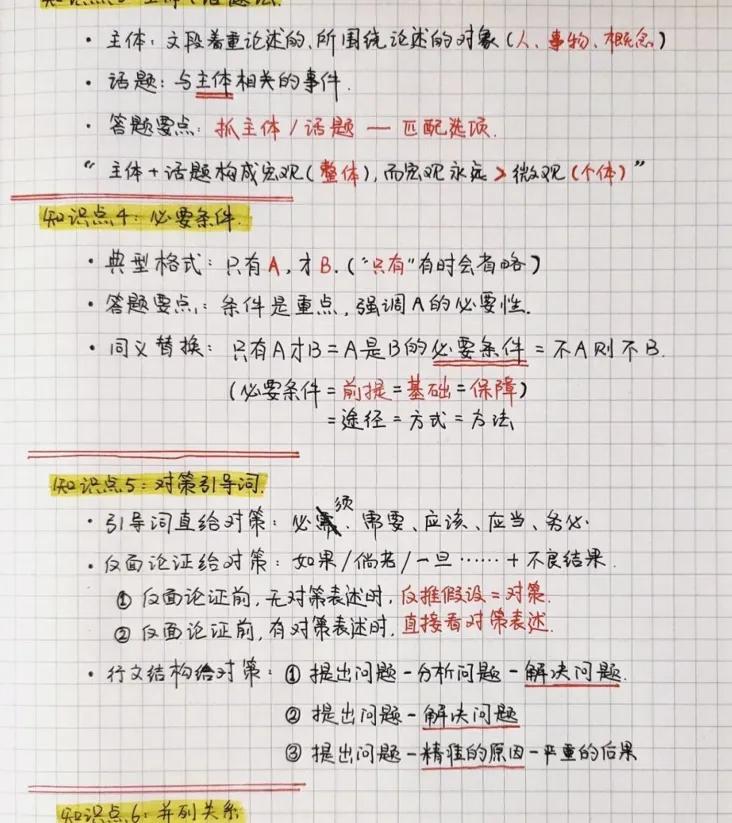 · 主体：文段着重论述的、所围绕论述的对象（人、事物、概念）
· 话题：与主体相关的事件.
· 答题要点：抓主体/话题 — 匹配选项.
“ 主体+话题构成宏观（整体），而宏观永远>微观（个体）”
知识点4：必要条件.
· 典型格式：只有A，才B.（“只有”有时会省略）
· 答题要点：条件是重点，强调A的必要性.
· 同义替换：只有A才B=A是B的必要条件=不A则不B.
（必要条件=前提=基础=保障）
=途径=方式=方法
知识点5：对策引导词.
· 引导词直给对策：必须、需要、应该、应当、务必.
· 反面论证给对策：如果/倘若/一旦……+不良结果.
① 反面论证前，无对策表述时，反推假设=对策.
② 反面论证前，有对策表述时，直接看对策表述.
· 行文结构给对策：① 提出问题-分析问题-解决问题.
② 提出问题-解决问题
③ 提出问题-精准的原因-严重的后果
知识点6：并列关系